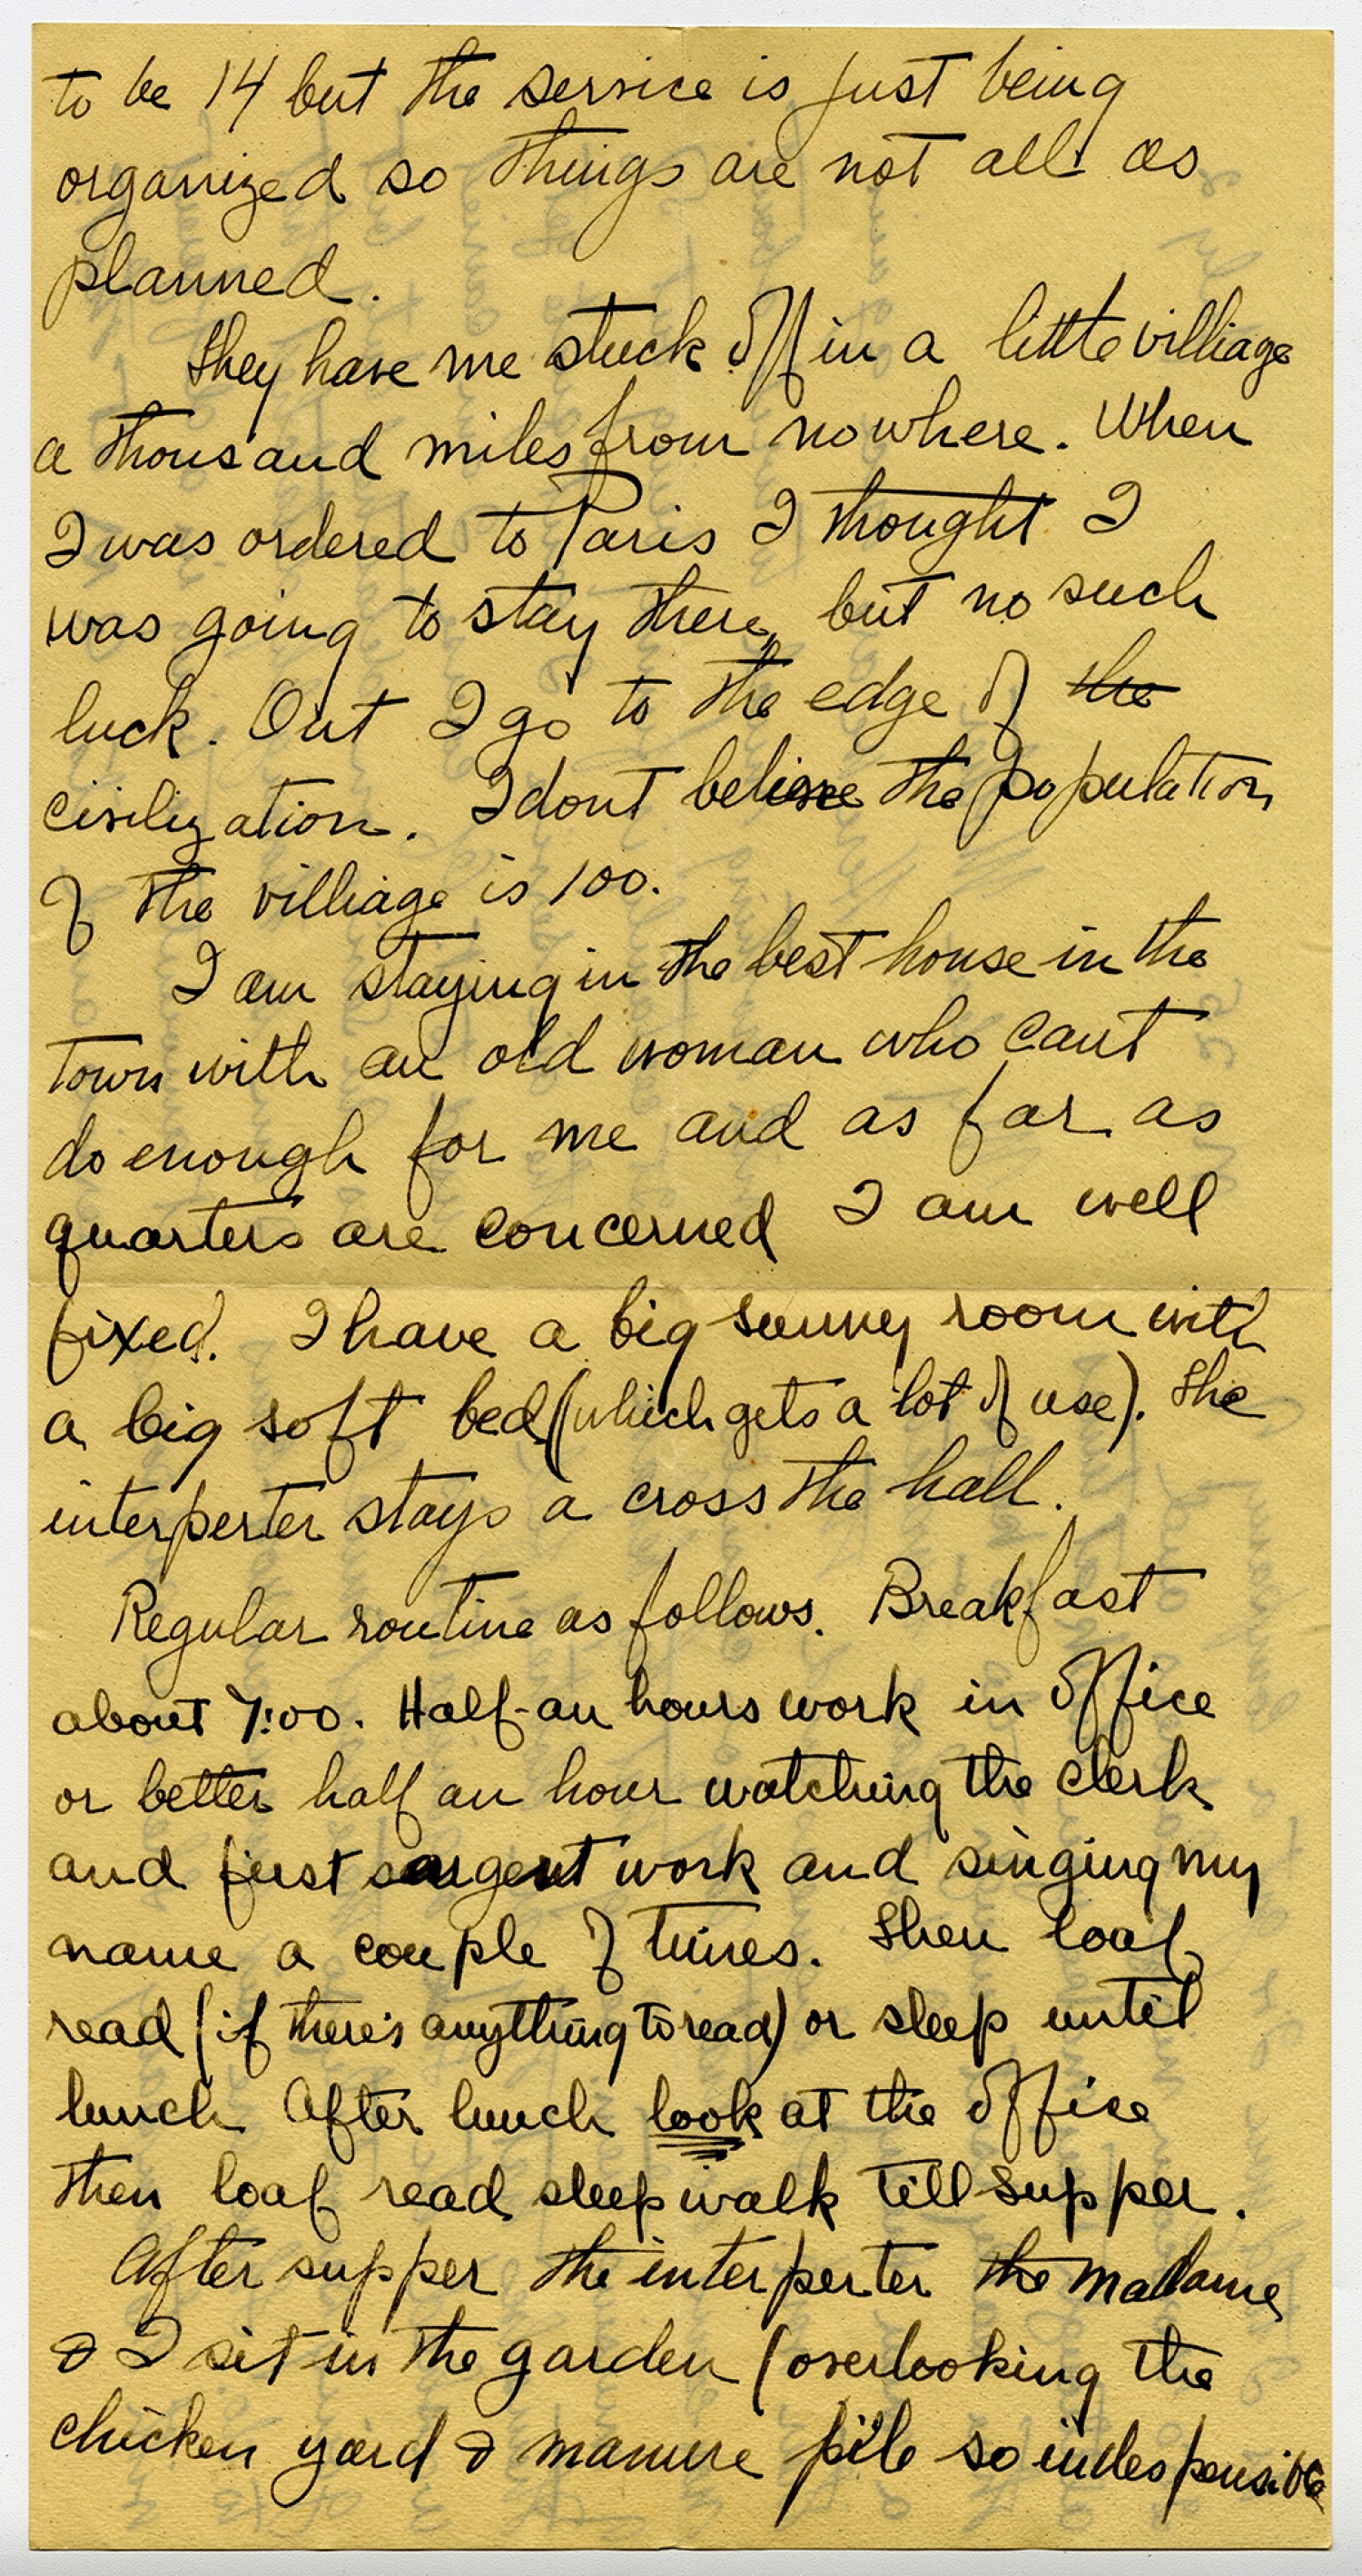 to be 14 but the service is just being
organized so things are not all as
planned.
They have me stuck off in a little villiage
a thousand miles from nowhere. When
I was ordered to Paris I thought I
was going to stay there, but no such
luck. Out I go to the edge of the
civilization. I dont believe the population
of the villiage is 100.
I am staying in the best house in the
town with an old woman who cant
do enough for me and as far as
quarters are concerned I am well
fixed. I have a big sunney room with
a big soft bed (which gets a lot of use). The
interperter stays a cross the hall.
Regular routine as follows. Breakfast
about 7:00. Half-an hours work in office
or better half an hour watching the clerk
and first sargent work and singing my
name a couple of times. Then loaf
read (if there's anything to read) or sleep until
lunch After lunch look at the office
then loaf read sleep walk till supper.
After supper the interperter the madame
& I sit in the garden (overlooking the
chicken yard & manure pile so indespensible